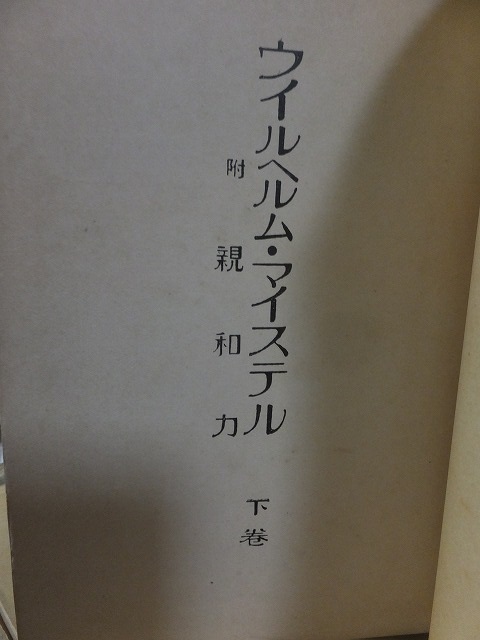 ウイルヘルム・マイステル
附 親和力
下巻